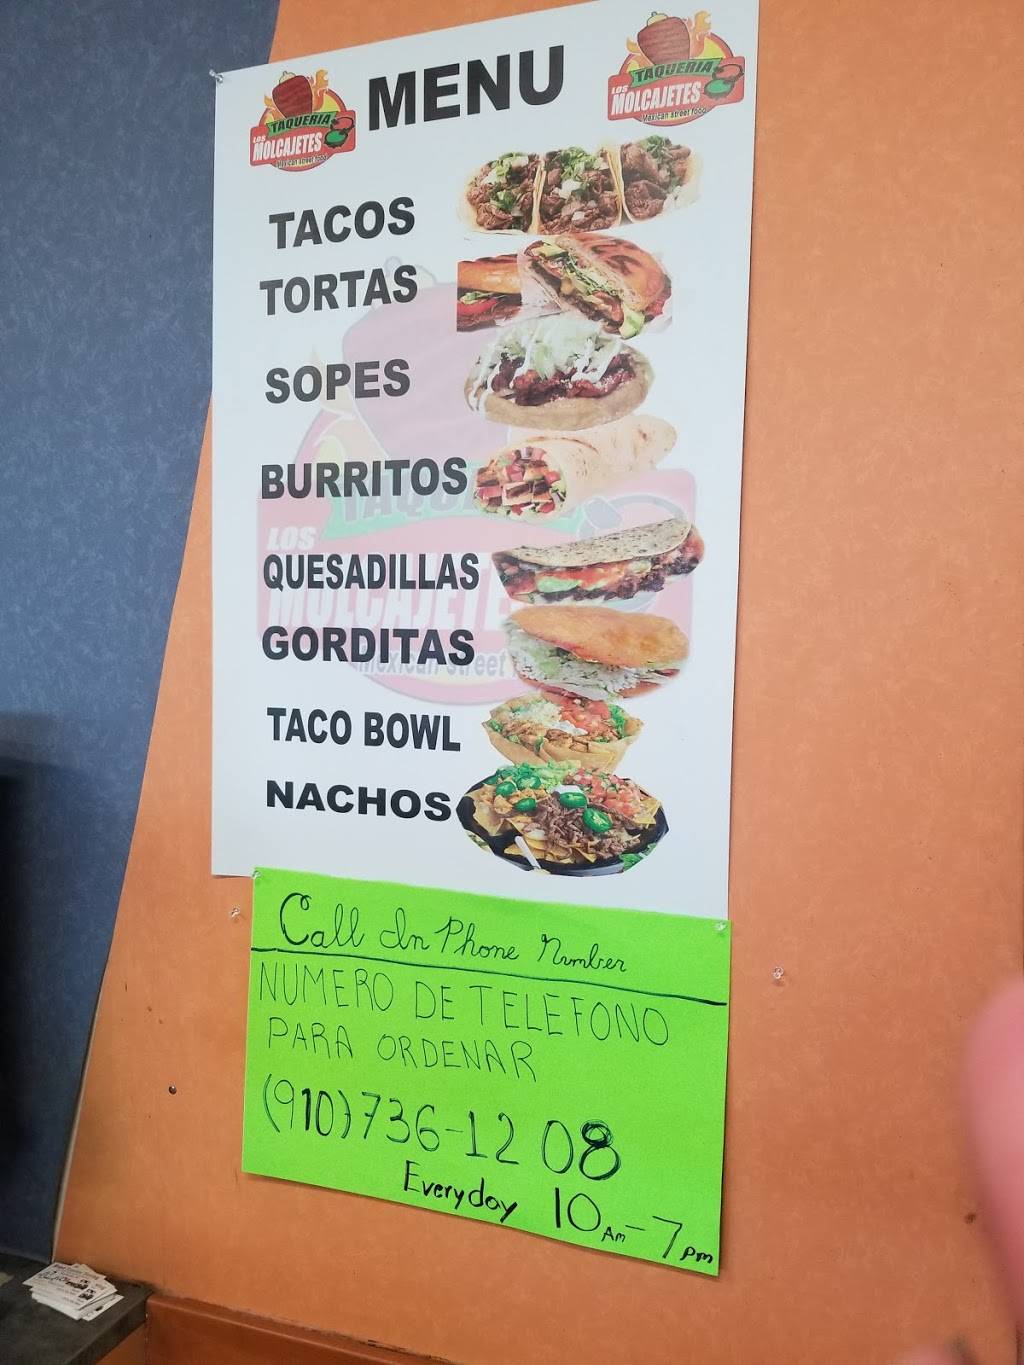 MENU
TAQUERIA
LOS
MOLCAJETES
Mexican street food
TAQUERIA
LOS
MOLCAJETES
Mexican street food
TACOS
TORTAS
SOPES
BURRITOS
QUESADILLAS
GORDITAS
TACO BOWL
NACHOS
Call In Phone Number
NUMERO DE TELEFONO
PARA ORDENAR
(910)736-1208
Everyday 10Am-7pm